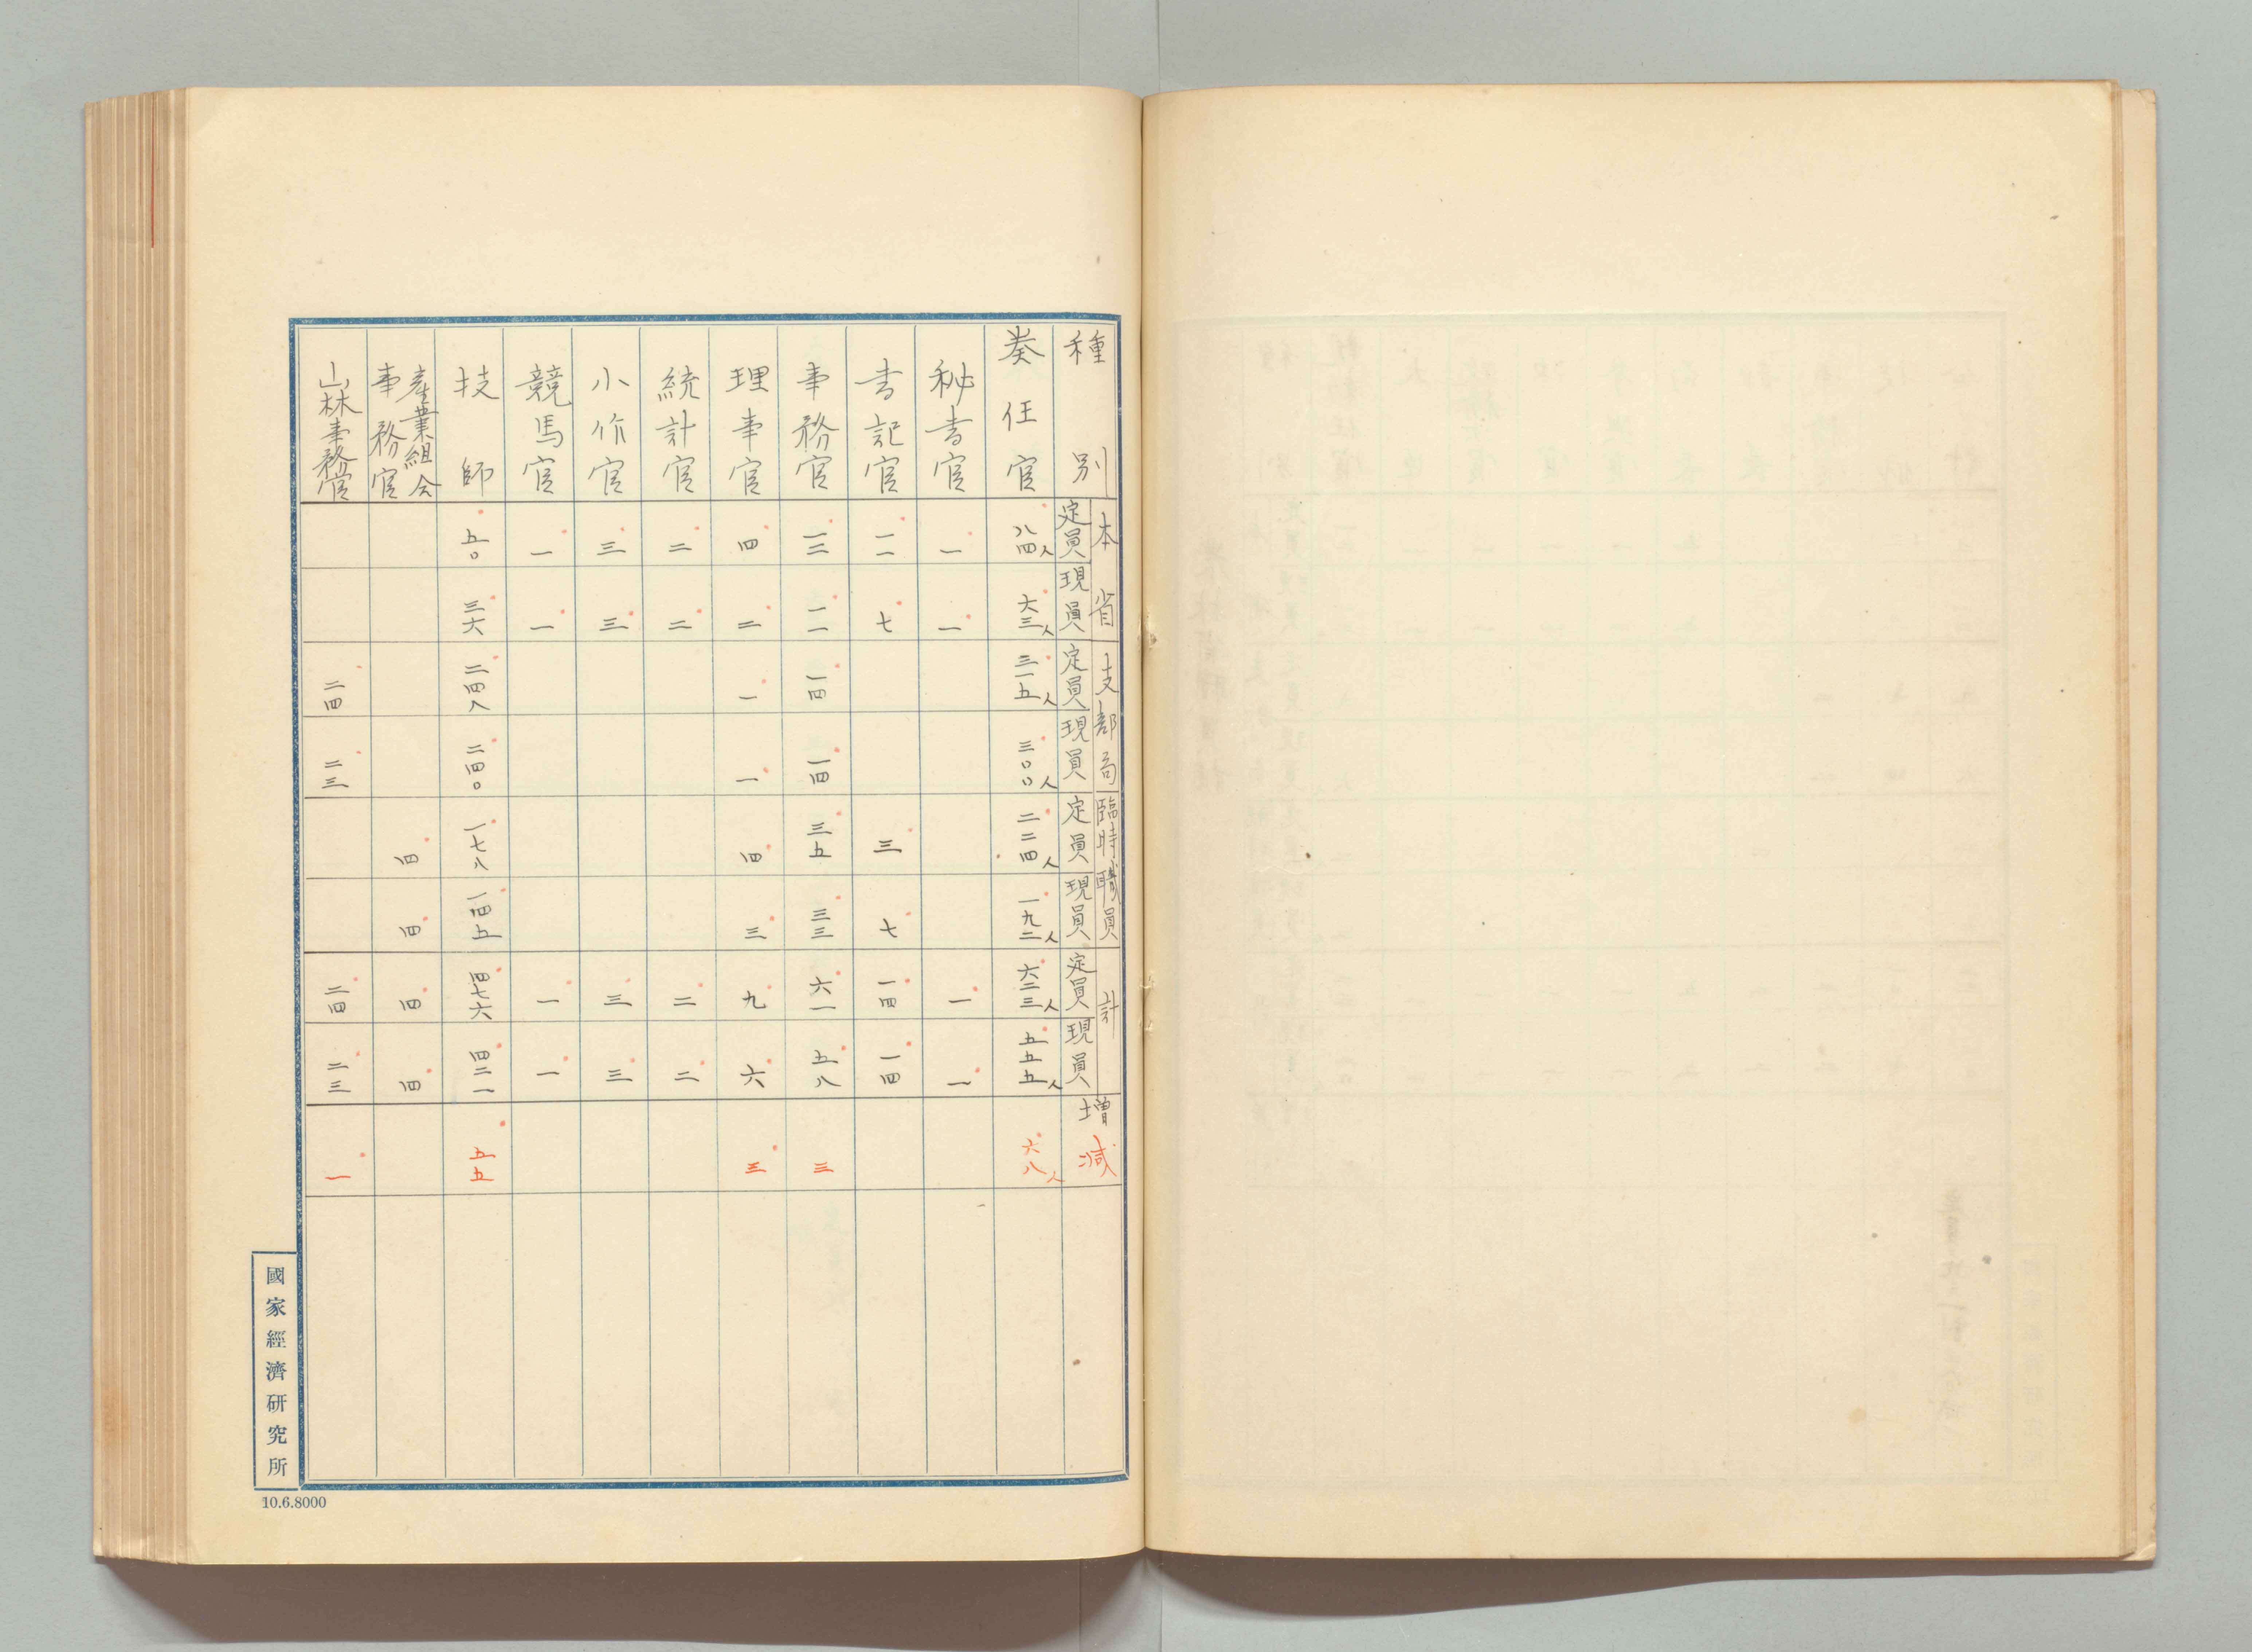 種別
本省
定員 現員
支部局
定員 現員
臨時職員
定員 現員
計
定員 現員
増減
奏任官 八四人 六三人 三一五人 三〇〇人 二二四人 一九二人 六二三人 五五五人 六八人
秘書官 一 一 一 一
書記官 一一 七 三 七 一四 一四
事務官 一二 一一 一四 一四 三五 三三 六一 五八 三
理事官 四 二 一 一 四 三 九 六 三
統計官 二 二 二 二
小作官 三 三 三 三
競馬官 一 一 一 一
技師 五〇 三六 二四八 二四〇 一七八 一四五 四七六 四二一 五五
産業組合
事務官 四 四 四 四
山林事務官 二四 二三 二四 二三 一
國家經濟研究所
10.6.8000